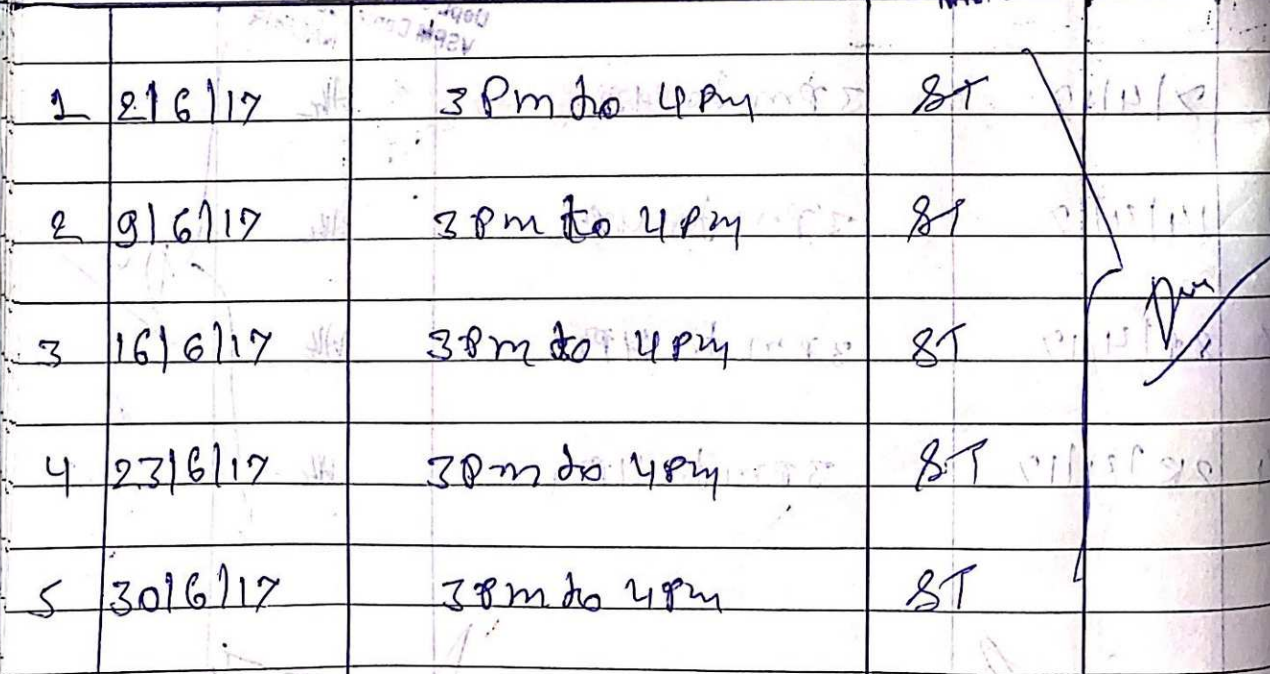 1 2/6/17 3 Pm to 4 Pm ST
2 9/6/17 3 Pm to 4 Pm ST
3 16/6/17 3 Pm to 4 Pm ST
4 23/6/17 3 Pm to 4 Pm ST
5 30/6/17 3 Pm to 4 Pm ST